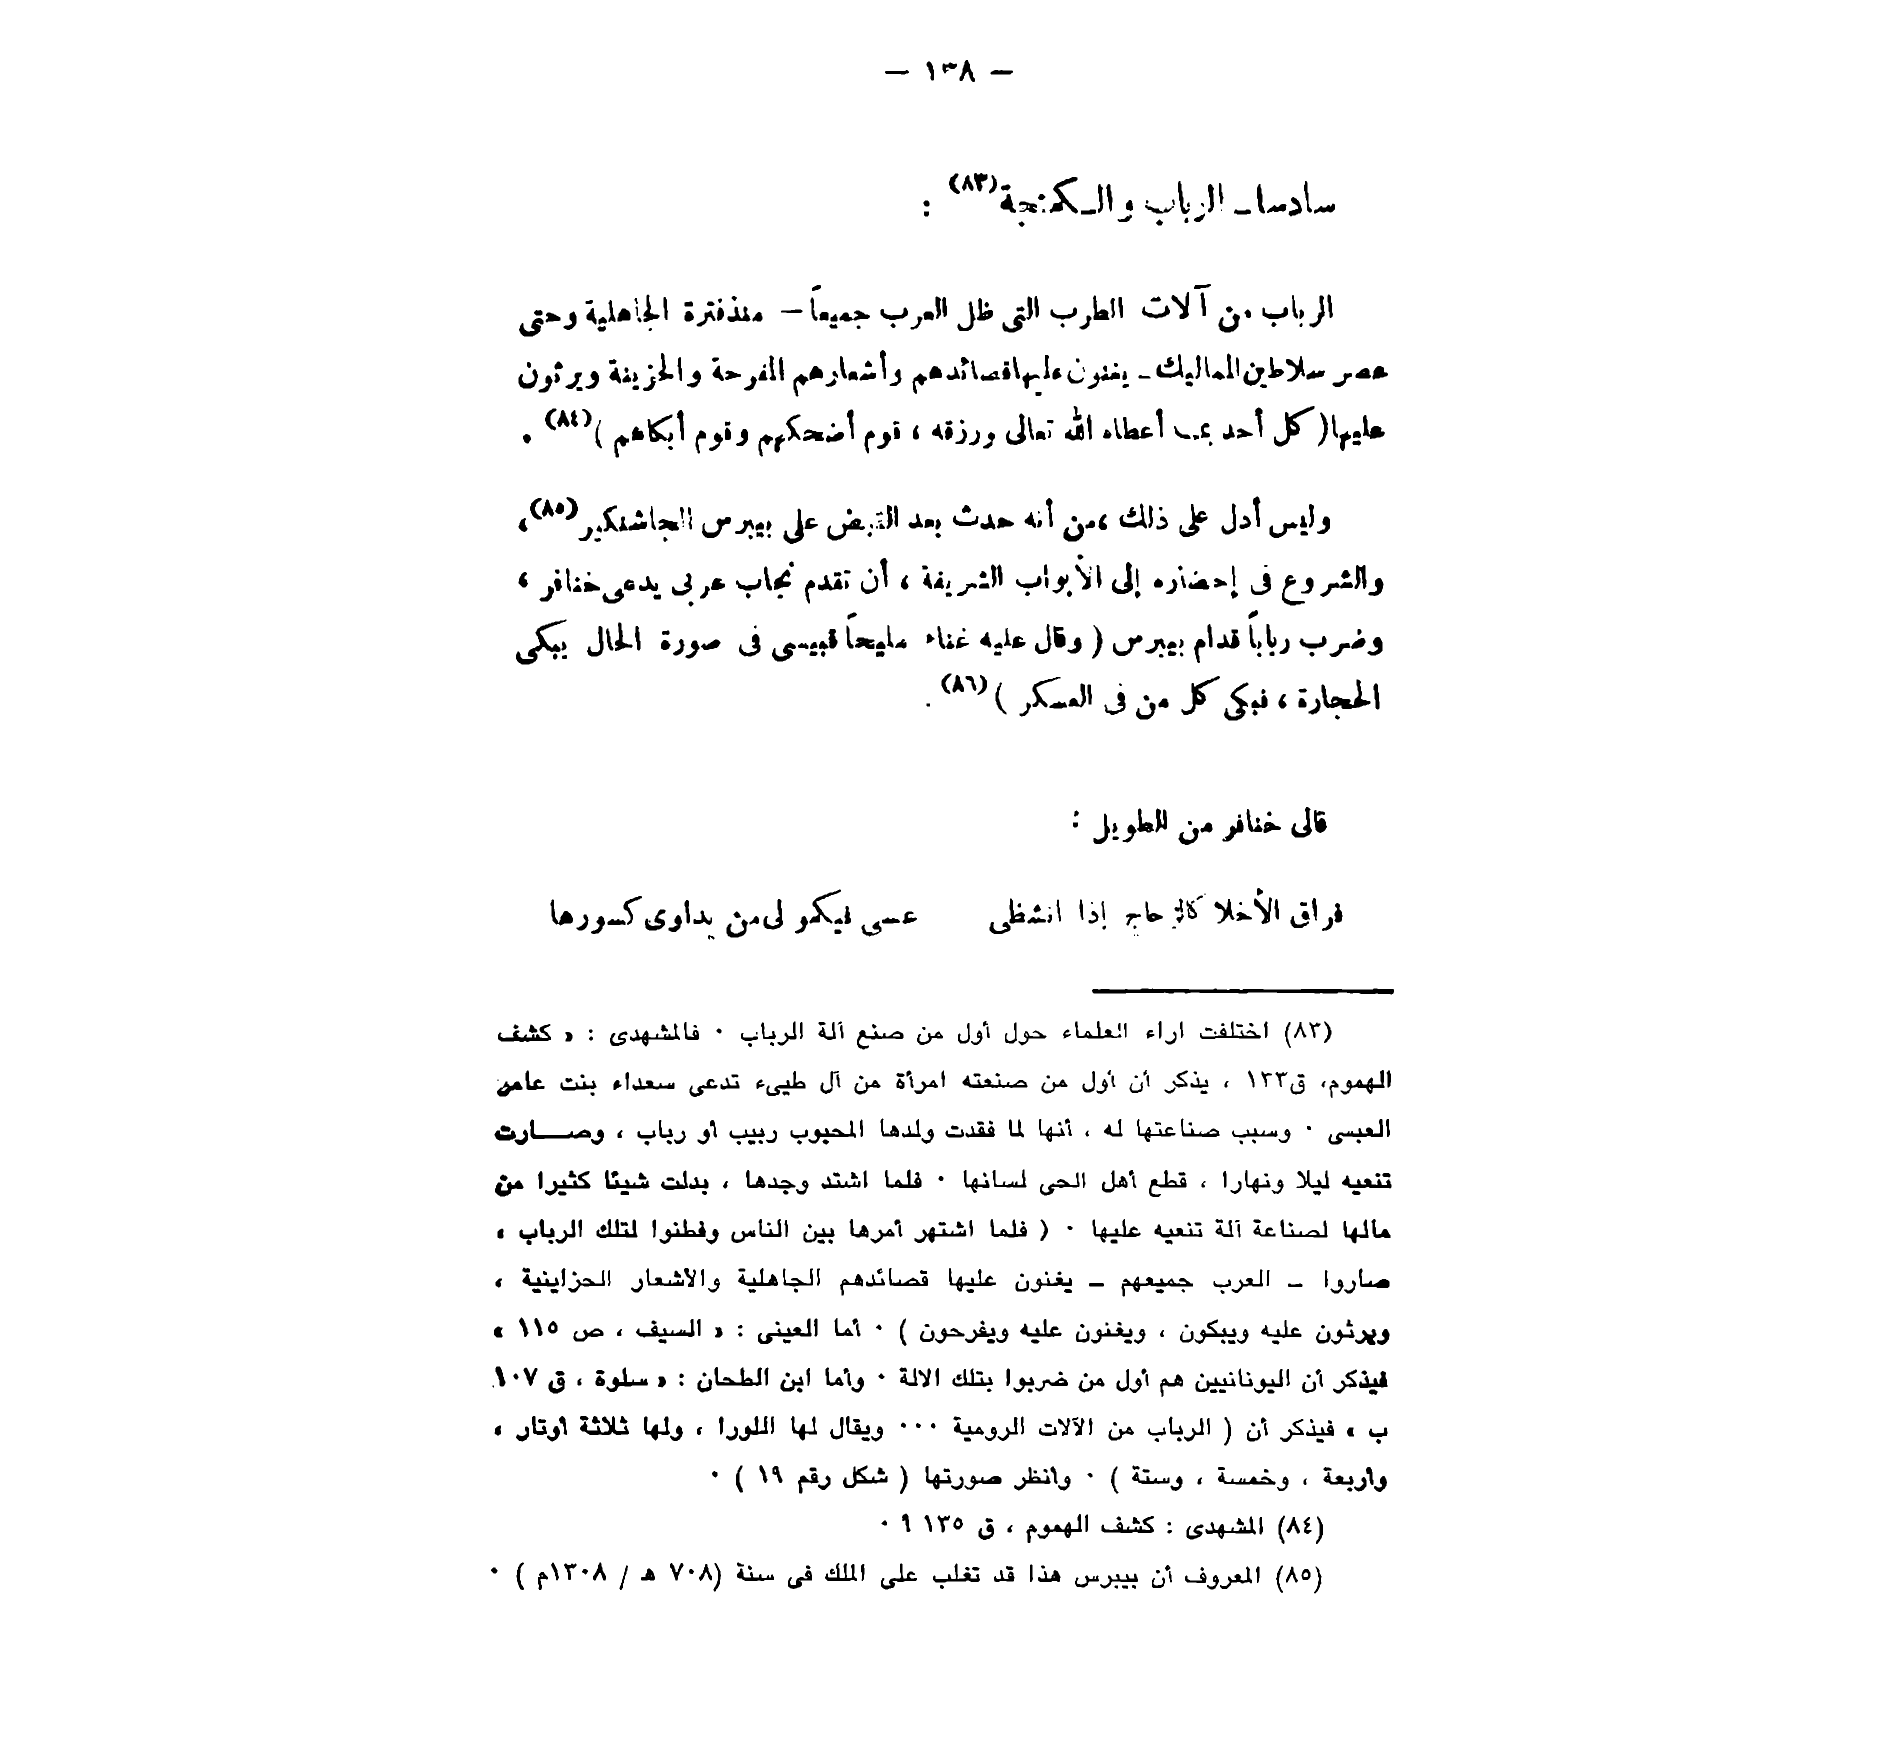 — ١٣٨ —
سادسا ـ الرباب والكمنجة (٨٣) :
الرباب من آلات الطرب التى ظل العرب جميعاً — منذ فترة الجاهلية وحتى
عصر سلاطين المماليك ـ يغنون عليها قصائدهم وأشعارهم المفرحة والحزينة ويرثون
عليها ( كل أحد بما أعطاه الله تعالى ورزقه ، قوم أضحكهم وقوم أبكاهم ) (٨٤) .
وليس أدل على ذلك ، من أنه حدث بعد القبض على بيبرس الجاشنكير (٨٥) ،
والشروع فى إحضاره إلى الأبواب الشريفة ، أن تقدم نجاب عربى يدعى خنافر ،
وضرب رباباً قدام بيبرس ( وقال عليه غناء مليحاً قبيسى فى صورة الحال يبكى
الحجارة ، فبكى كل من فى العسكر ) (٨٦) .
قالى خنافر من الطويل :
فراق الأخلا كالزجاج إذا انشظى عسى فيكمو لى من يداوى كسورها
(٨٣) اختلفت اراء العلماء حول أول من صنع آلة الرباب ٠ فالمشهدى : « كشف
الهموم، ق١٣٣ ، يذكر أن أول من صنعته امرأة من آل طيىء تدعى سعداء بنت عامر
العبسى ٠ وسبب صناعتها له ، أنها لما فقدت ولدها المحبوب ربيب أو رباب ، وصـــارت
تنعيه ليلا ونهارا ، قطع أهل الحى لسانها ٠ فلما اشتد وجدها ، بدلت شيئا كثيرا من
مالها لصناعة آلة تنعيه عليها ٠ ( فلما اشتهر أمرها بين الناس وفطنوا لتلك الرباب ،
صاروا ـ العرب جميعهم ـ يغنون عليها قصائدهم الجاهلية والأشعار الحزاينية ،
ويرثون عليه ويبكون ، ويغنون عليه ويفرحون ) ٠ أما العينى : « السيف ، ص ١١٥ »
فيذكر أن اليونانيين هم أول من ضربوا بتلك الالة ٠ وأما ابن الطحان : « سلوة ، ق ١٠٧
ب » فيذكر أن ( الرباب من الآلات الرومية ٠٠٠ ويقال لها اللورا ، ولها ثلاثة أوتار ،
وأربعة ، وخمسة ، وستة ) ٠ وانظر صورتها ( شكل رقم ١٩ ) ٠
(٨٤) المشهدى : كشف الهموم ، ق ١٣٥ ٩ ٠
(٨٥) المعروف أن بيبرس هذا قد تغلب على الملك فى سنة (٧٠٨ هـ / ١٣٠٨م ) ٠